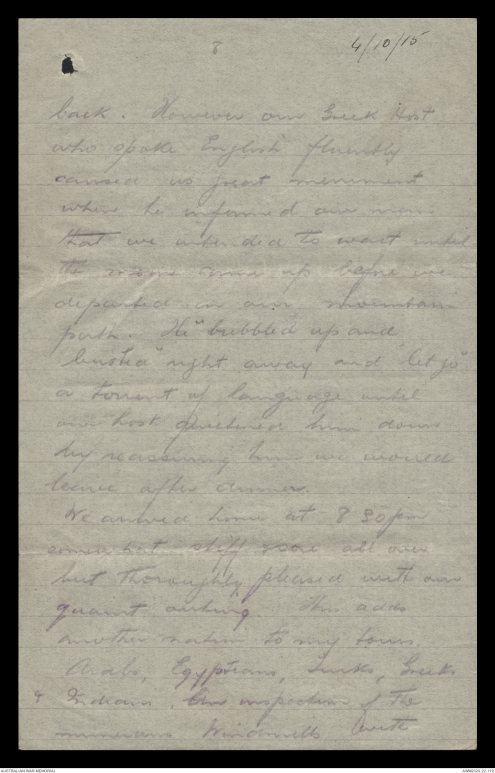 8
4/10/15
back. However our Greek Host
who spoke English fluently
caused us great merriment
when he informed our man
that we intended to wait until
the moon came up before we
departed in our mountain
path. He "bubbled up and
busted" right away and "let go"
a torrent of language until
our host quietened him down
by reassuring him we would
leave after dinner.
We arrived home at 8 30 pm
somewhat stiff & sore all over
but thoroughly pleased with our
quaint outing. This adds
another nation to my tours.
Arabs, Egyptians, Turks, Greeks
& Indians. An inspection of the
numerous Windmills with
AUSTRALIAN WAR MEMORIAL